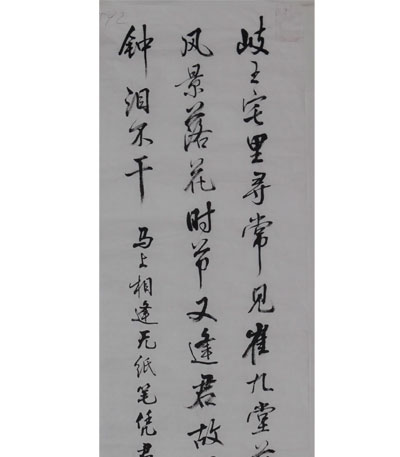 岐王宅里寻常见崔九堂前
风景落花时节又逢君故
钟泪不干
马上相逢无纸笔凭君